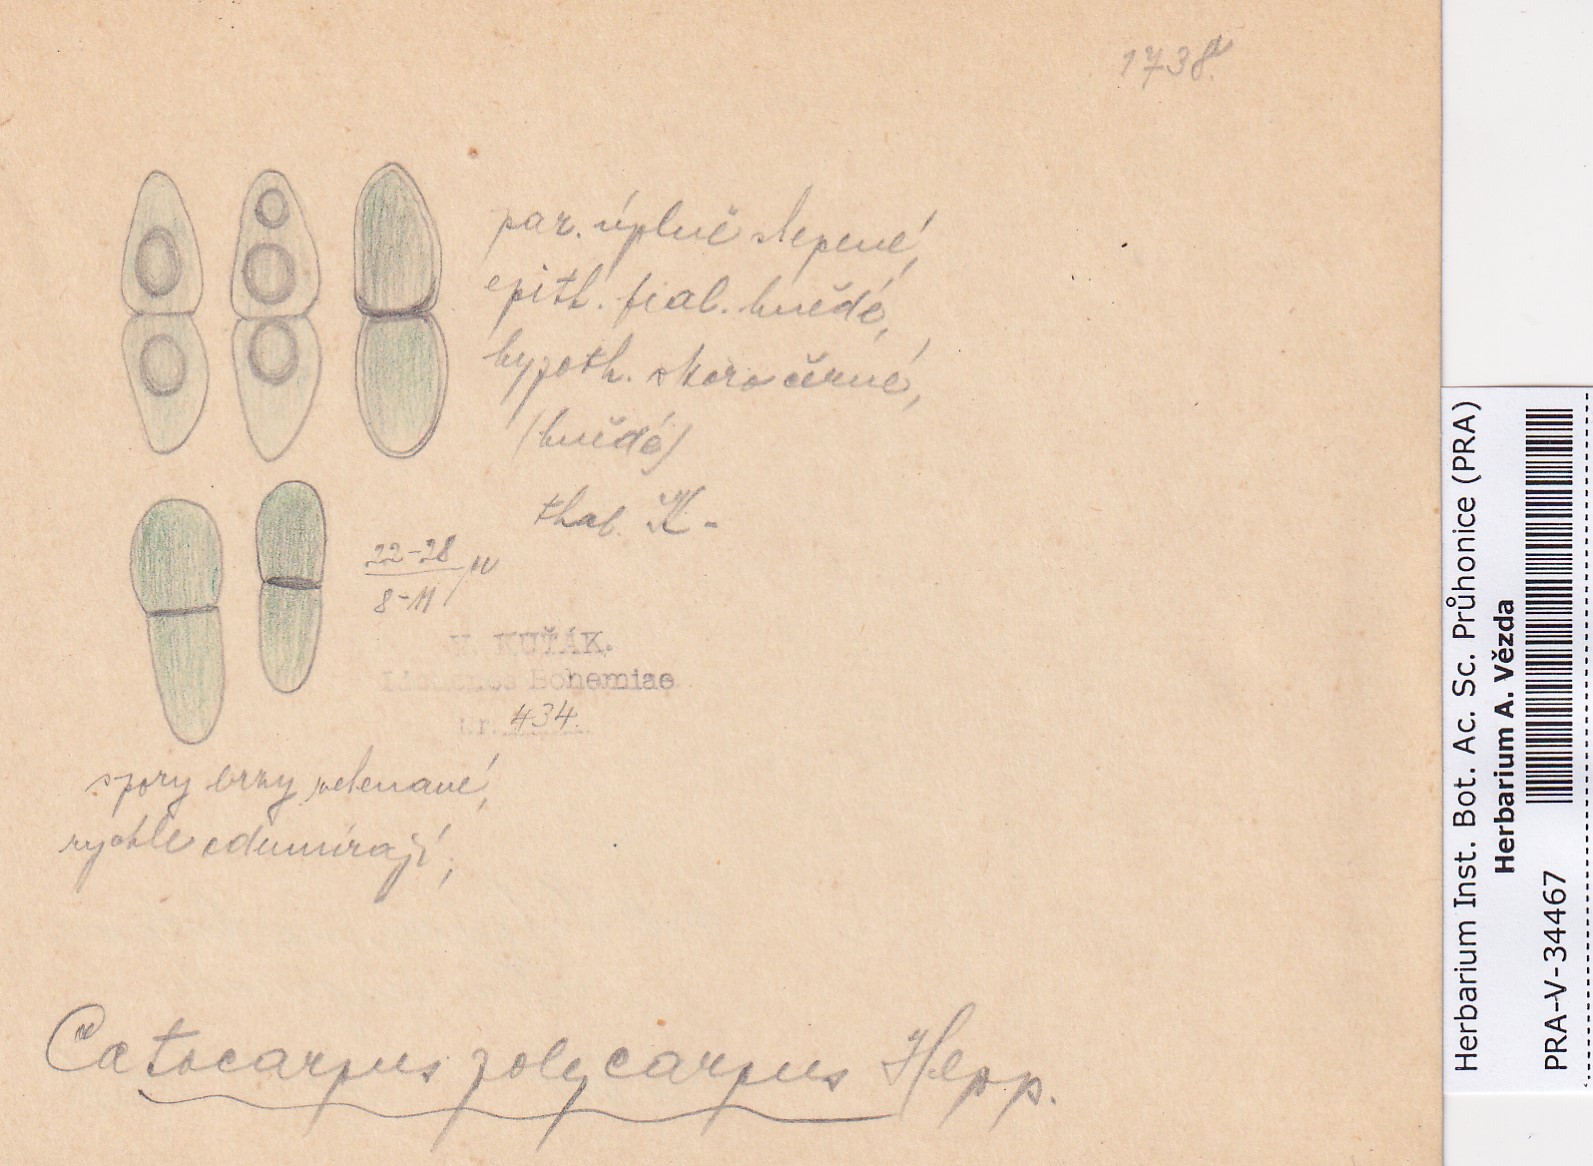 1738.
par. úplně slepené,
epith. fial. hnědé,
hypoth. skoro černé,
(hnědé)
thal. K -
22-28
8-11 μ
V. KUŤÁK.
Lichenes Bohemiae
nr. 434.
spory brzy zelenavé,
rychle odumírají,
Catocarpus polycarpus Hepp.
Herbarium Inst. Bot. Ac. Sc. Průhonice (PRA)
Herbarium A. Vězda
PRA-V-34467